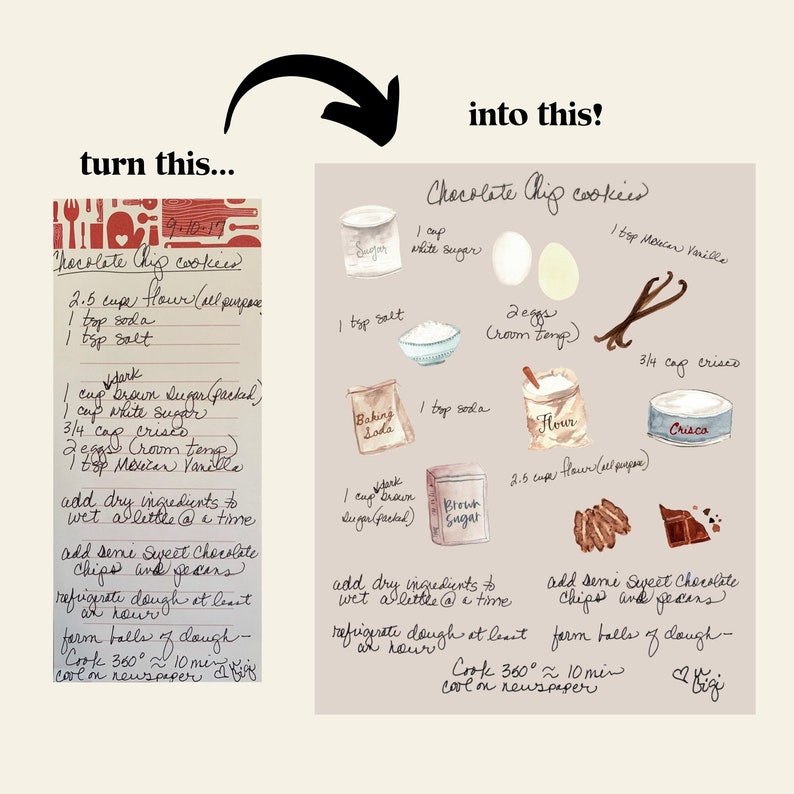 turn this...
into this!
9-10-17
Chocolate Chip cookies
2.5 cups flour (all purpose)
1 tsp soda
1 tsp salt
dark
1 cup brown sugar (packed)
1 cup white sugar
3/4 cup crisco
2 eggs (room temp)
1 tsp Mexican Vanilla
add dry ingredients to
wet a little @ a time
add semi sweet Chocolate
chips and pecans
refrigerate dough at least
an hour
form balls of dough—
Cook 350° ≈ 10 min
cool on newspaper
♡ u
Gigi
Chocolate Chip cookies
Sugar
1 cup
white sugar
1 tsp Mexican Vanilla
1 tsp salt
2 eggs
(room temp)
3/4 cup crisco
Baking
Soda
1 tsp soda
Flour
Crisco
dark
1 cup brown
sugar (packed)
Brown
Sugar
2.5 cups flour (all purpose)
add dry ingredients to
wet a little @ a time
add semi sweet Chocolate
chips and pecans
refrigerate dough at least
an hour
form balls of dough—
Cook 350° ≈ 10 min
cool on newspaper
♡ u
Gigi